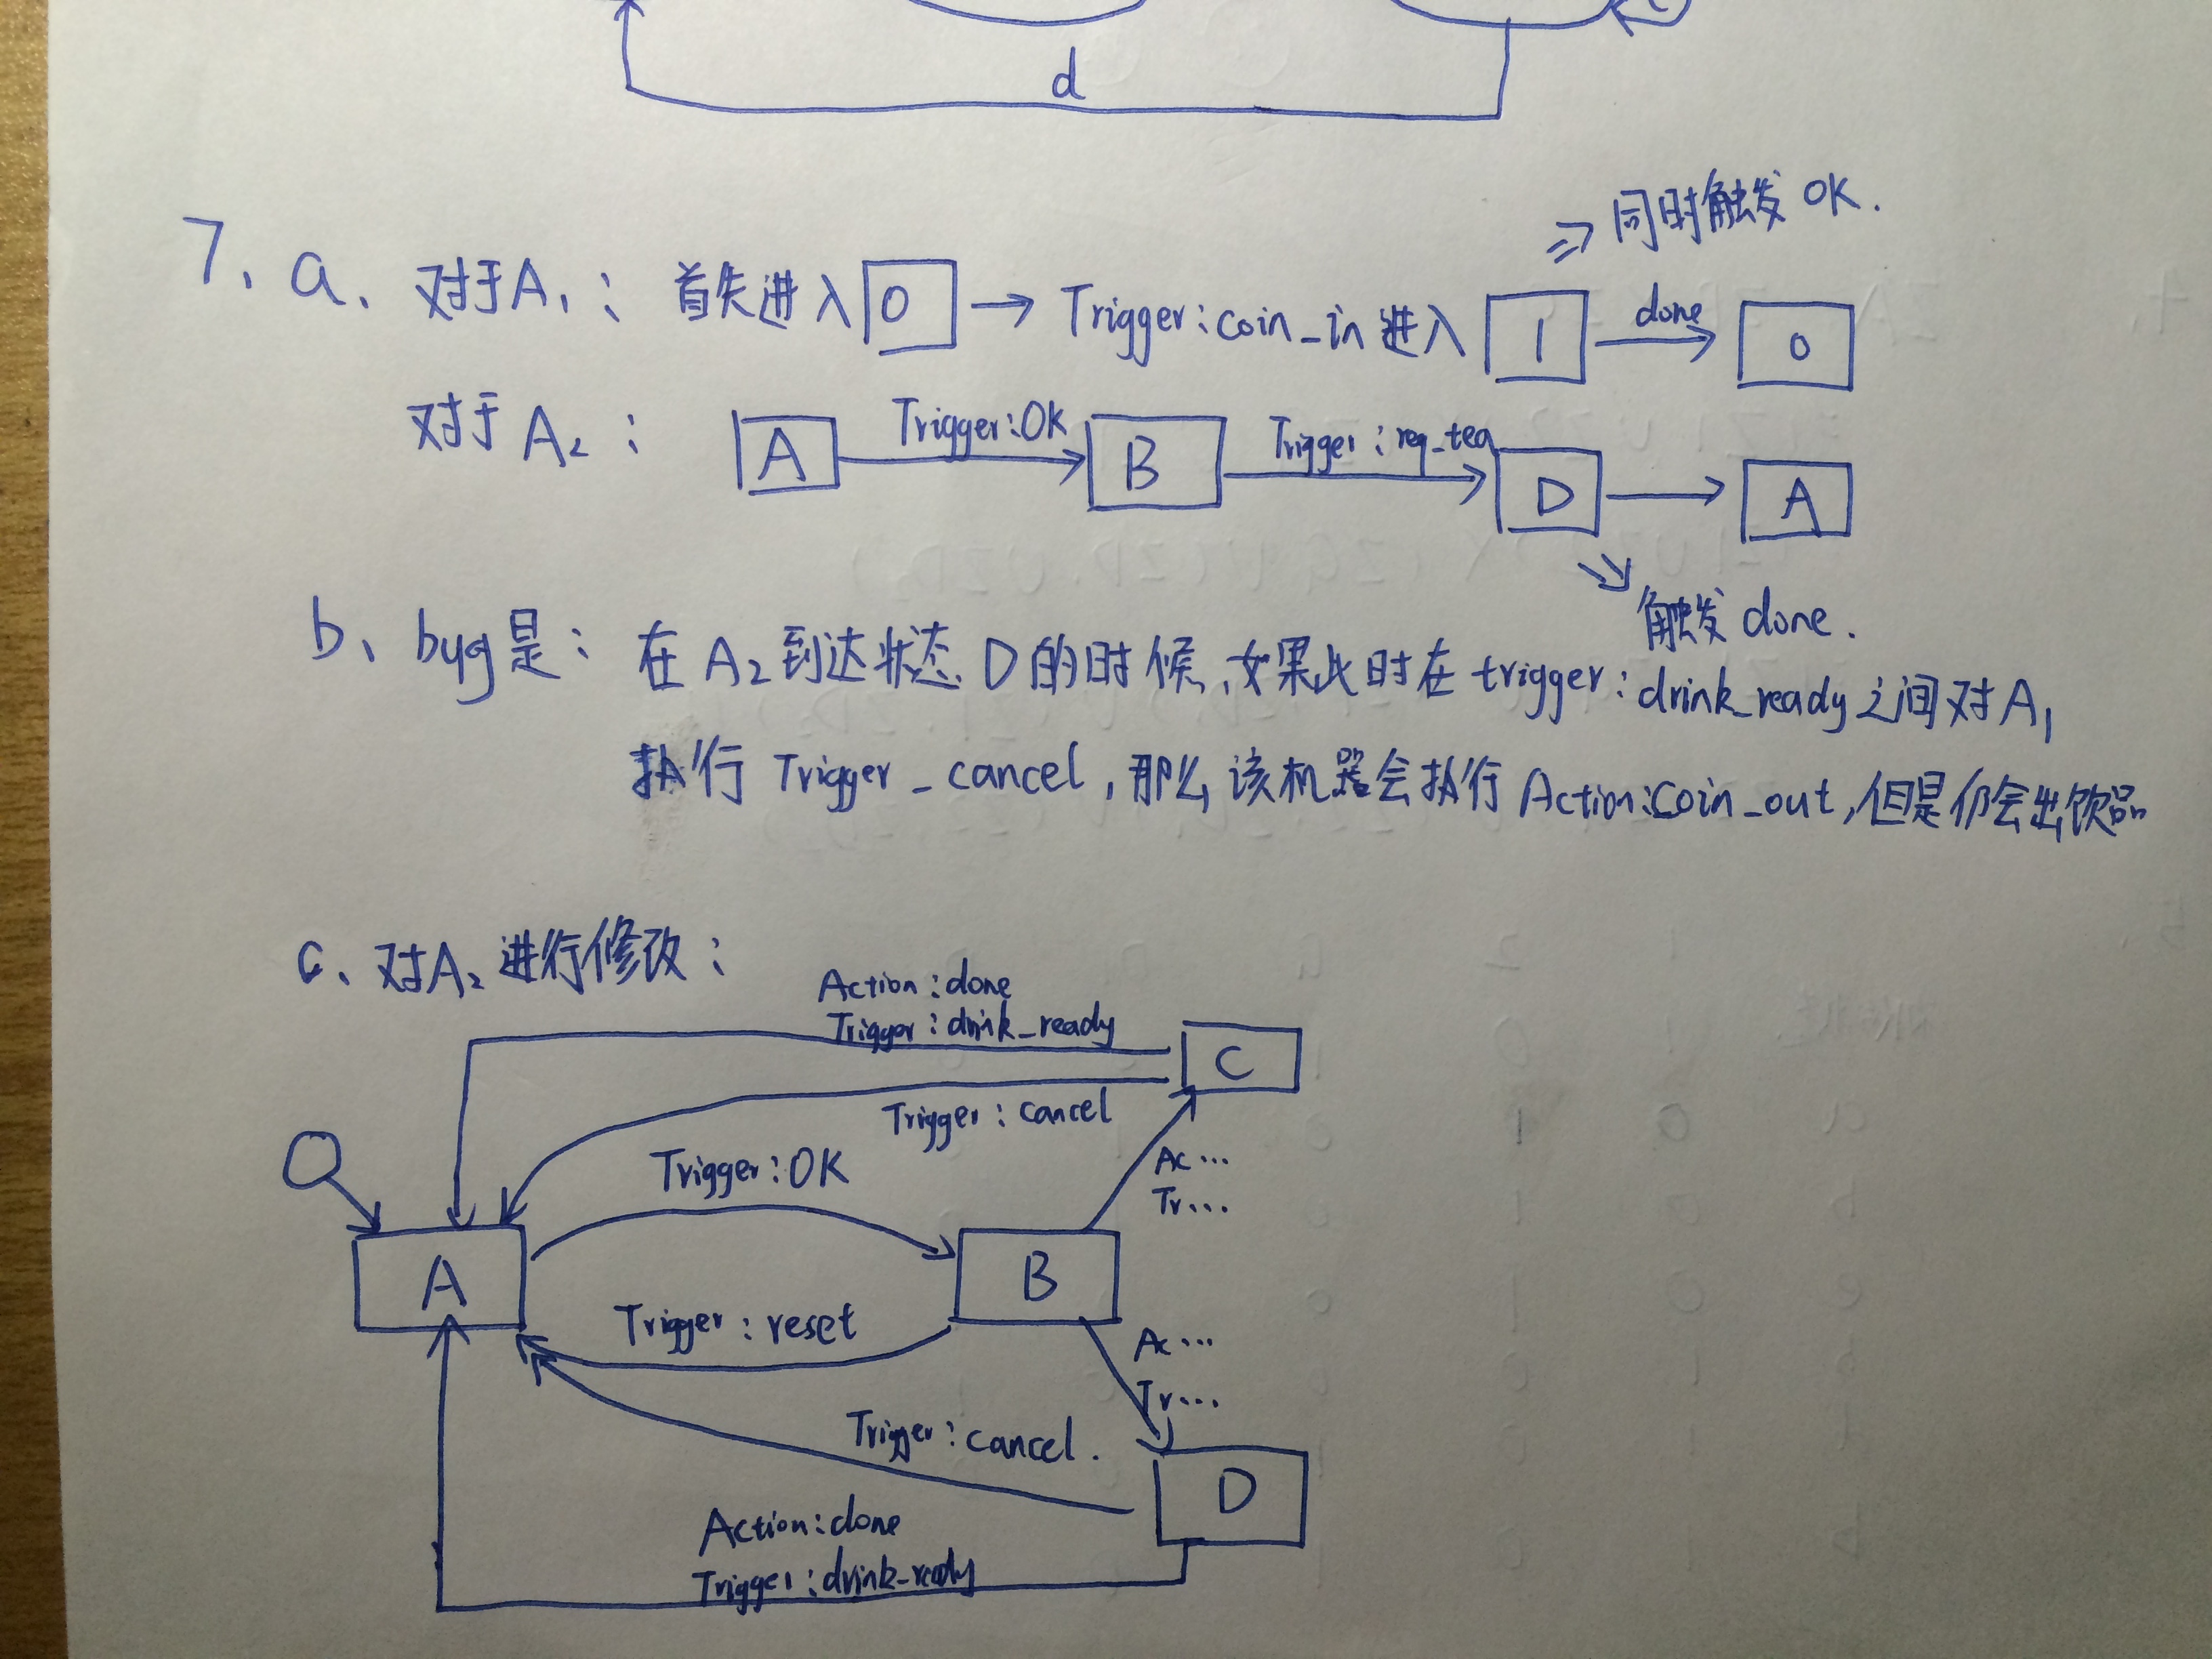 d
⇒ 同时触发 OK.
7、a、对于A₁：首先进入 0 → Trigger:coin_in 进入 1 done 0
对于A₂： A Trigger:OK B Trigger:req_tea D A
触发 done.
b、bug是：在A₂到达状态D的时候,如果此时在trigger:drink_ready之间对A₁
执行 Trigger_cancel,那么该机器会执行 Action:coin_out,但是仍会出饮品
c、对A₂进行修改：
Action:done
Trigger:drink_ready
C
Trigger:cancel
Ac...
Tr...
Trigger:OK
A
B
Trigger:reset
Ac...
Tr...
Trigger:cancel.
D
Action:done
Trigger:drink_ready